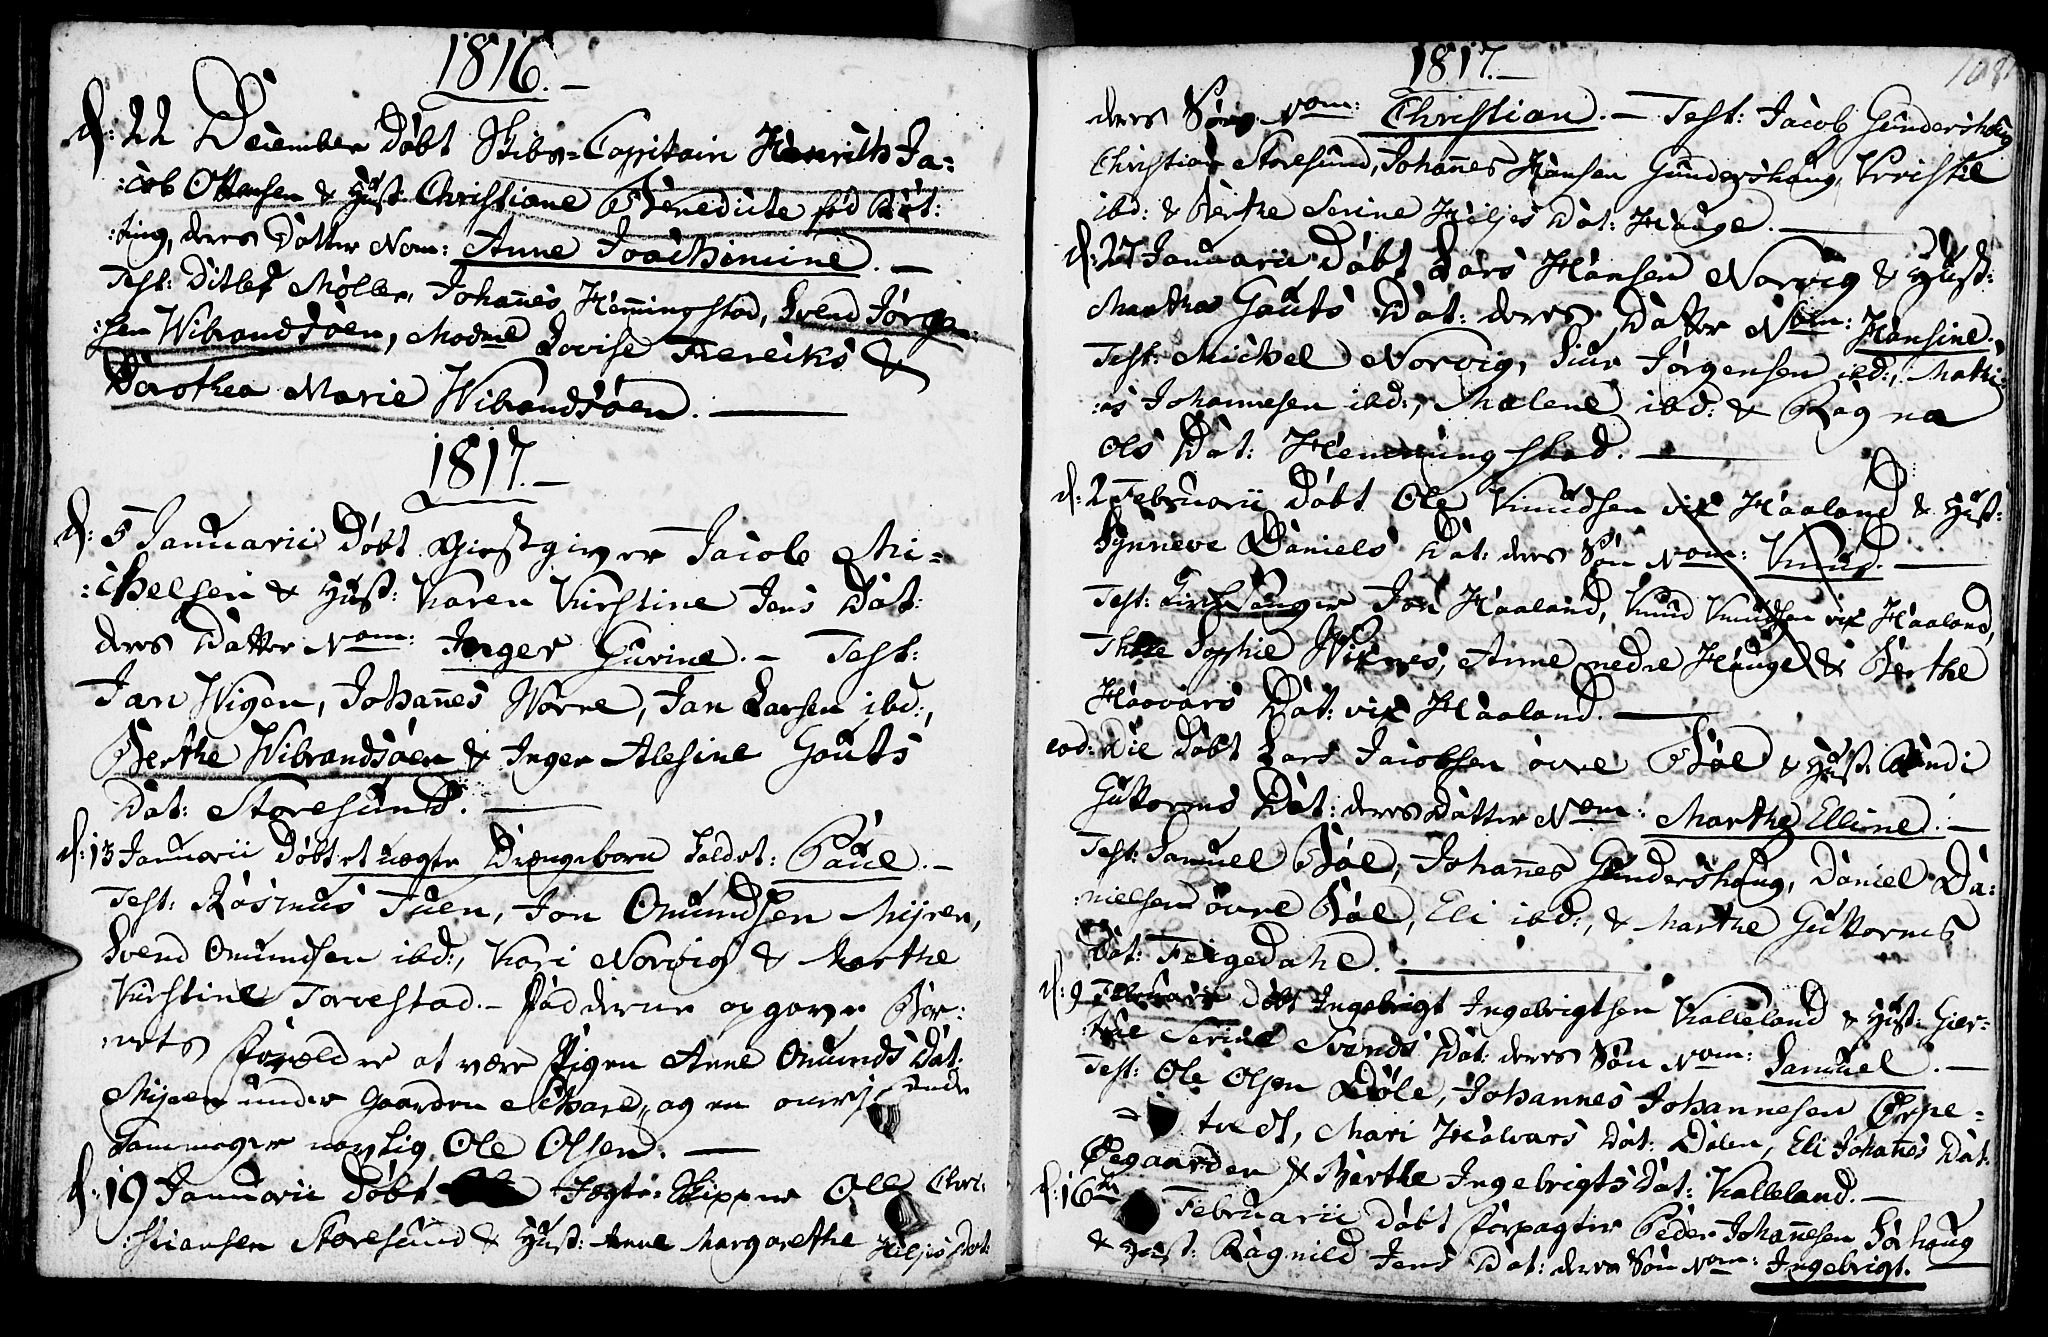 1816.
d: 22 December Døbt Skibs-Capitain Henrich Ja=
:cob Ottensen & Hust: Christiane Benedicte fød
:ting, deres Datter Nom: Anne Joachimine. —
Test: Ditlef Møller, Johanes Hemingstad, Svend Jørgen:
:sen Wibrandsøen, Modme Lovise Frericks &
Dorothea Marie Wibrandsøen. —
1817. —
d: 5 Januarii Døbt Giestgiver Jacob Mi=
:chelsen & Hust: Karen Kirstine Jens Dat:
deres Datter Nom: Inger Gurine. — Test:
Jan Wigen, Johanes Norre, Jan Larsen ibd:,
Berthe Wibrandsøen & Inger Alesine Gouts
Dat: Storesund. —
d: 13 Januarii Døbt et uægte Drengebarn kaldet: Paul. —
Test: Rasmus Tuen, Jon Omundsen Mijren,
Svend Omundsen ibd:, Kari Norvig & Marthe
Kirstine Torvestad. — Fadderne opgave Bar:
:nets Forældre at være Pigen Anne Omunds Dat:
Mijren under Gaarden Skare, og en
navnlig Ole Olsen. —
d: 19 Januarii Døbt Jægte-Skipper Ole Chri:
:stiansen Storesund & Hust: Anne Margarethe Heljes Dat:
1817. —
108
deres Søn Nom: Christian. — Test: Jacob Gundershaug
Christian Storesund, Johanes Hansen Gundershaug, Kristie
ibd: & Berthe Serine Heljes Dat: Hauge. —
d: 27 Januarii Døbt Lars Hansen Norvig & Hust:
Martha Gauts Dat: deres Datter Nom: Hansine.
Test: Michel Norvig, Siur Jørgensen ibd:, Mathi:
:as Johannesen ibd:, Malene ibd: & Ragna
Ols Dat: Hemmingstad. —
d: 2 Februarii Døbt Ole Knudsen vix Haaland & Hust:
Synneve Daniels Dat: deres Søn Nom: Knud. —
Test: Kirkesanger Jon Haaland, Knud Knudsen vix Haaland,
Sophie Wixnes, Anne nedre Hauge & Berthe
Haavars Dat: vix Haaland. —
eod: die Døbt Lars Jacobsen øvre Bøe & Hust: Randi
Guttorms Dat: deres Datter Nom: Marthe Elline. —
Test: Samuel Bøe, Johanes Gundershaug, Daniel Da:
:nielsen øvre Bøe, Eli ibd:, & Marthe Guttorms
Dat: Feigedahl. —
d: 9 Februarii Døbt Ingebrigt Ingebrigtsen Kalleland & Hust: Gier:
:true Serine Svends Dat: deres Søn Nom: Samuel. —
Test: Ole Olsen Døle, Johannes Johannesen Erpe=
= tvedt, Mari Halvars Dat: Dalen, Eli Johanes Dat:
Øegaarden & Berthe Ingebrigts Dat: Kalleland. —
d: 16de Februarii Døbt Forpagter Peder Johanesen Sørhaug
& Hust: Ragnild Jens Dat: deres Søn Nom: Ingebrigt.